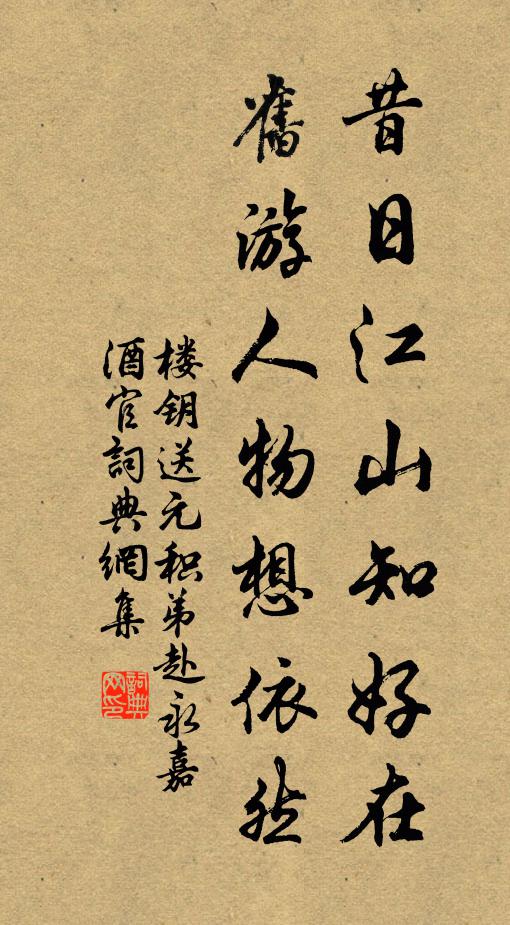 昔日江山知好在
舊游人物想依然
楼钥送元积弟赴永嘉
酒官詞典網集
詞典网印